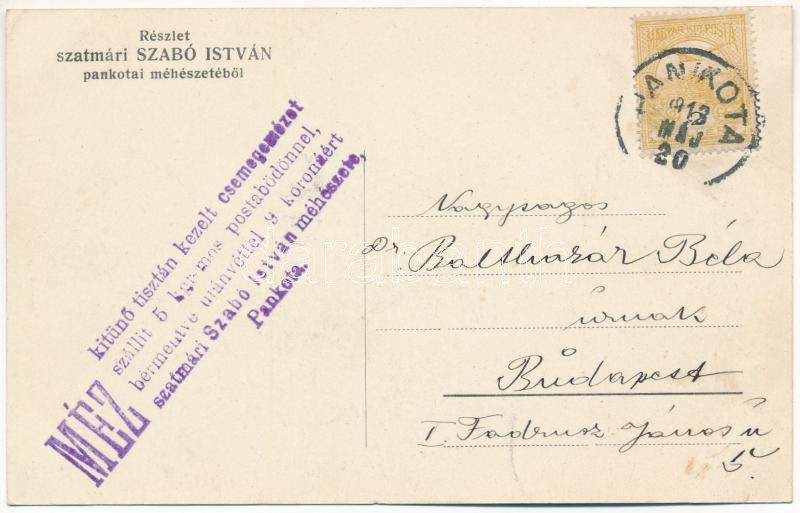 Részlet
szatmári SZABÓ ISTVÁN
pankotai méhészetéből
MAGYAR KIR. POSTA
PANKOTA
912
MÁJ
20
MÉZ
kitünő tisztán kezelt csemegemézet
szállit 5 kgr-mos postabödönnel,
bérmentve utánvéttel 9 koronáért
szatmári Szabó István méhészete,
Pankota.
Nagyságos
Dr. Balthazár Béla
úrnak
Budapest
I. Fadrusz János u
5.
darabanth